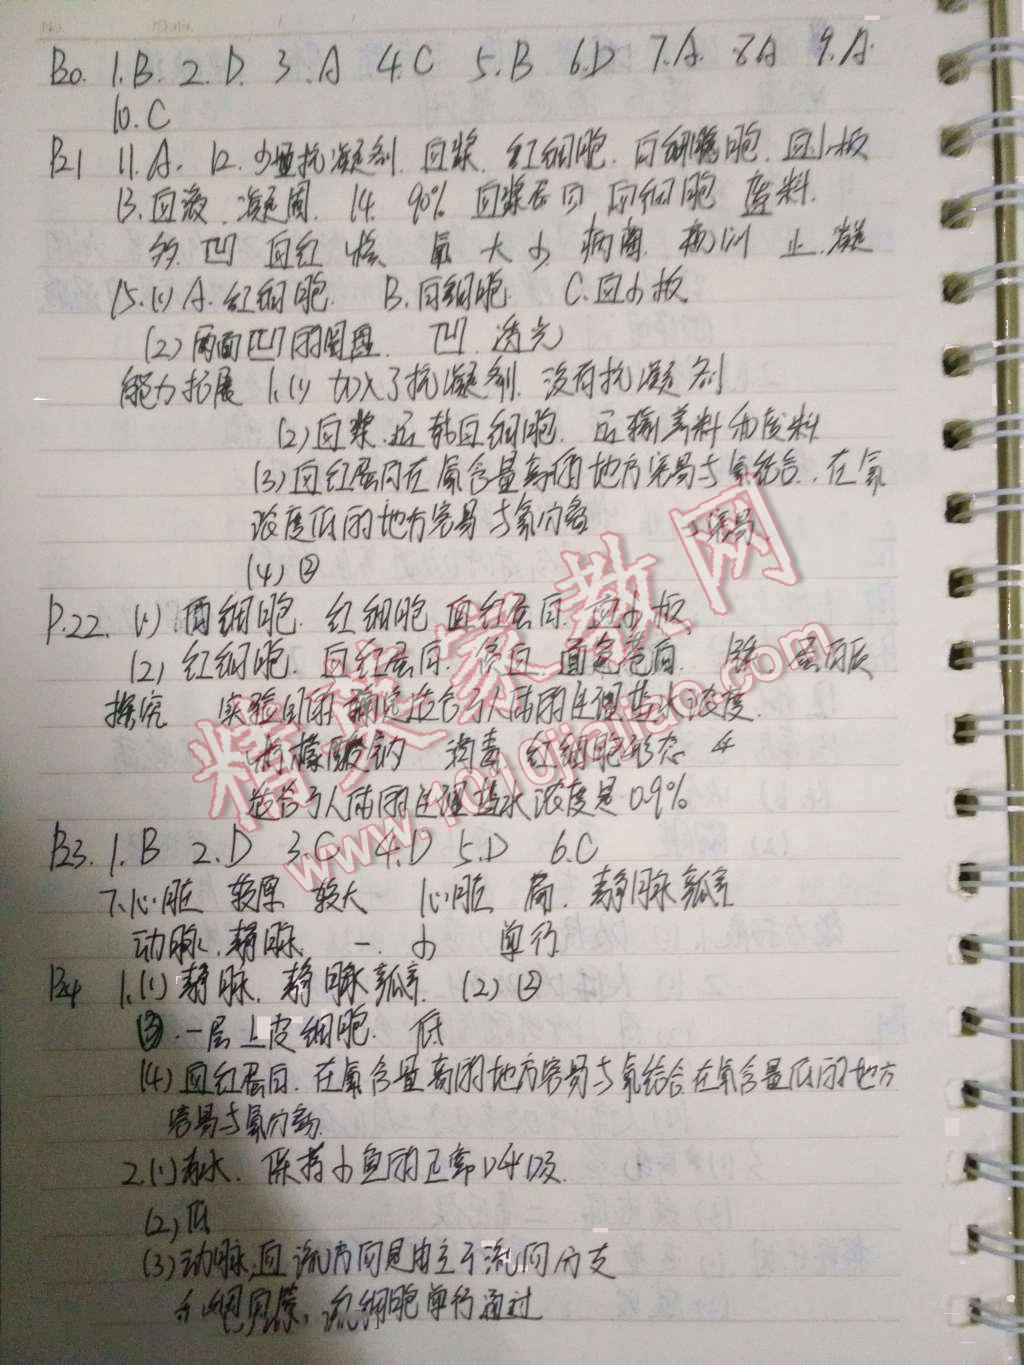 P20. 1.B. 2.D. 3.A 4.C 5.B 6.D 7.A. 8A 9.A.
10.C
P21 11.A. 12.少量抗凝剂. 血浆. 红细胞. 白细胞 血小板
13.血液. 凝固. 14. 90% 血浆蛋白 血细胞 废料.
凹 血红 氧 大 少. 病菌. 止. 凝
15.(1) A.红细胞. B.白细胞. C.血小板
(2)两面凹的圆盘. 凹. 透光
能力拓展 1.(1) 加入了抗凝剂. 没有抗凝剂
(2)血浆.运载血细胞. 运输养料和废料
(3)血红蛋白在氧含量高的地方容易与氧结合. 在氧
浓度低的地方容易与氧分离
(4)②
P.22. (1).白细胞. 红细胞 血红蛋白. 血小板
(2) 红细胞. 血红蛋白. 贫血. 面色苍白. 铁. 蛋白质
探究 实验目的 确定适合于人体的生理盐水浓度.
柠檬酸钠 消毒 红细胞形态 4
适合于人体的生理盐水浓度是0.9%
P23. 1.B 2.D 3.C 4.D 5.D 6.C
7.心脏 较厚 较大 心脏 静脉瓣
动脉. 静脉. 一. 小 单行
P24 1.(1)静脉. 静脉瓣. (2)②
(3).一层上皮细胞. 低
(4)血红蛋白. 在氧含量高的地方容易与氧结合.在氧含量低的地方
容易与氧分离.
2.(1)清水. 保持小鱼的正常呼吸.
(2)低
(3)动脉.血流方向是由主干流向分支
毛细血管. 红细胞单行通过
精英家教网
www.1010jiajiao.com